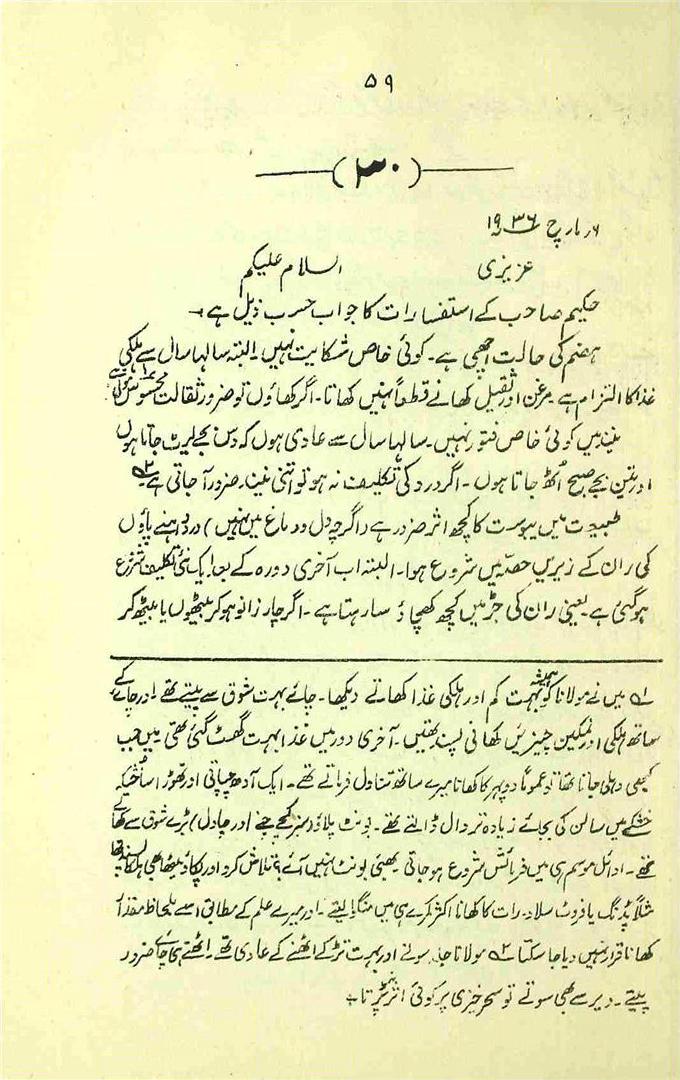 ۵۹
(۳۰)
۶ مارچ ۱۹۳۶
عزیزی السلام علیکم
حکیم صاحب کے استفسارات کا جواب حسب ذیل ہے۔
ہضم کی حالت اچھی ہے۔ کوئی خاص شکایت نہیں۔ البتہ سالہا سال سے ہلکی
غذا کا التزام ہے۔ مرغن اور ثقیل کھانے قطعاً نہیں کھاتا۔ اگر کھاؤں تو ضرور ثقالت محسوس ہوگی۱
نیند میں کوئی خاص فتور نہیں۔ سالہا سال سے عادی ہوں کہ دس بجے لیٹ جاتا ہوں
اور تین بجے صبح اُٹھ جاتا ہوں۔ اگر درد کی تکلیف نہ ہو تو اتنی نیند ضرور آ جاتی ہے۲
طبیعت میں یبوست کا کچھ اثر ضرور ہے (اگرچہ دل و دماغ میں نہیں) درد داہنے پاؤں
کی ران کے زیریں حصّہ میں شروع ہوا۔ البتہ اب آخری دورہ کے بعد ایک نئی تکلیف شروع
ہو گئی ہے۔ یعنی ران کی جڑ میں کچھ کھچاؤ سا رہتا ہے۔ اگر چار زانو ہو کر بیٹھوں یا بیٹھ کر
۱ میں نے مولانا کو ہمیشہ بہت کم اور ہلکی غذا کھاتے دیکھا۔ چائے بہت شوق سے پیتے تھے۔ اور چائے کے
ساتھ ہلکی اور نمکین چیزیں کھانی پسند تھیں۔ آخری دور میں غذا بہت گھٹ گئی تھی۔ میں جب
کبھی دہلی جاتا تھا تو عموماً دوپہر کا کھانا میرے ساتھ تناول فرماتے تھے۔ ایک آدھ چپاتی اور تھوڑا سا خشکہ
خشکے میں سالن کی بجائے زیادہ تر دال ڈالتے تھے۔ بونٹ پلاؤ (سبز کچے چنے اور چاول) بڑے شوق سے کھاتے
تھے۔ اوائل موسم ہی میں فرمائش شروع ہو جاتی۔ بھئی بونٹ نہیں آئے؟ تلاش کرو اور پکاؤ۔ میٹھا بھی ہلکا پسند تھا
مثلاً پڈنگ یا فروٹ سلاد۔ رات کا کھانا اکثر کمرے ہی میں منگا لیتے۔ اور میرے علم کے مطابق اسے بلحاظ مقدار
کھانا قرار نہیں دیا جا سکتا ۲ مولانا جلد سونے اور بہت تڑکے اٹھنے کے عادی تھے۔ اٹھتے ہی چائے ضرور
پیتے۔ دیر سے بھی سوتے تو سحر خیزی پر کوئی اثر نہ پڑتا۔